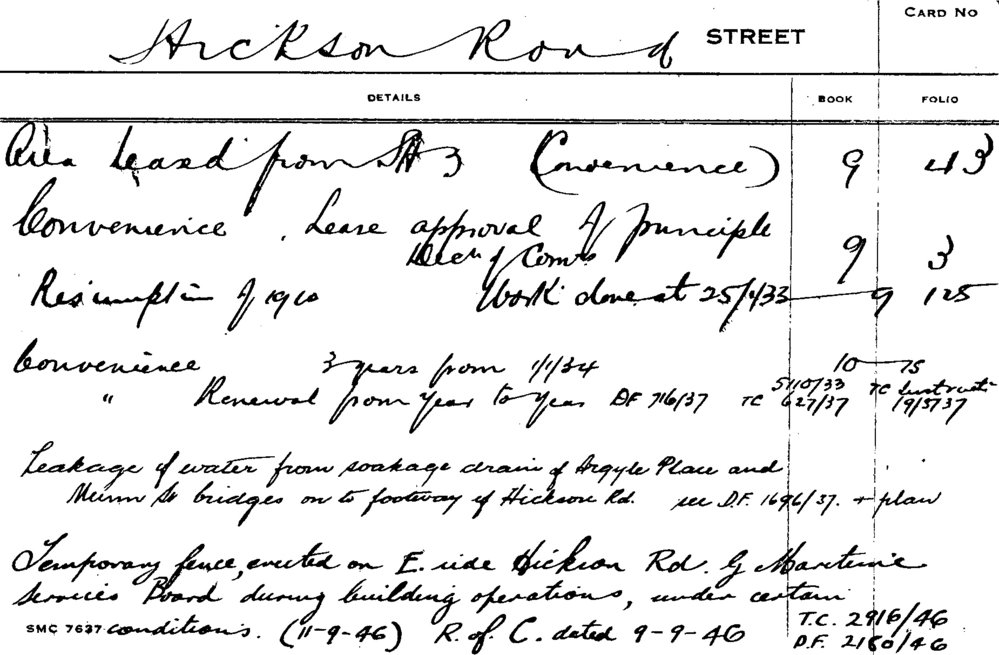 CARD NO
Hickson Road STREET
DETAILS BOOK FOLIO
Area Leased from SH 3 (Convenience) 9 43
Convenience . Lease approval of principle
of Comrs 9 3
Resumption of 1910 Work done at 25/1/33 9 125
Convenience 3 years from 1/1/34 10 75
" Renewal from Year to Year DF 716/37 TC 627/37
Leakage of water from soakage drain of Argyle Place and
Munn St bridges on to footway of Hickson Rd. see D.F. 1696/37. + plan
Temporary fence, erected on E. side Hickson Rd. by Maritime
Services Board during building operations, under certain
SMC 7637 conditions. (11-9-46) R. of C. dated 9-9-46 T.C. 2916/46
D.F. 2180/46